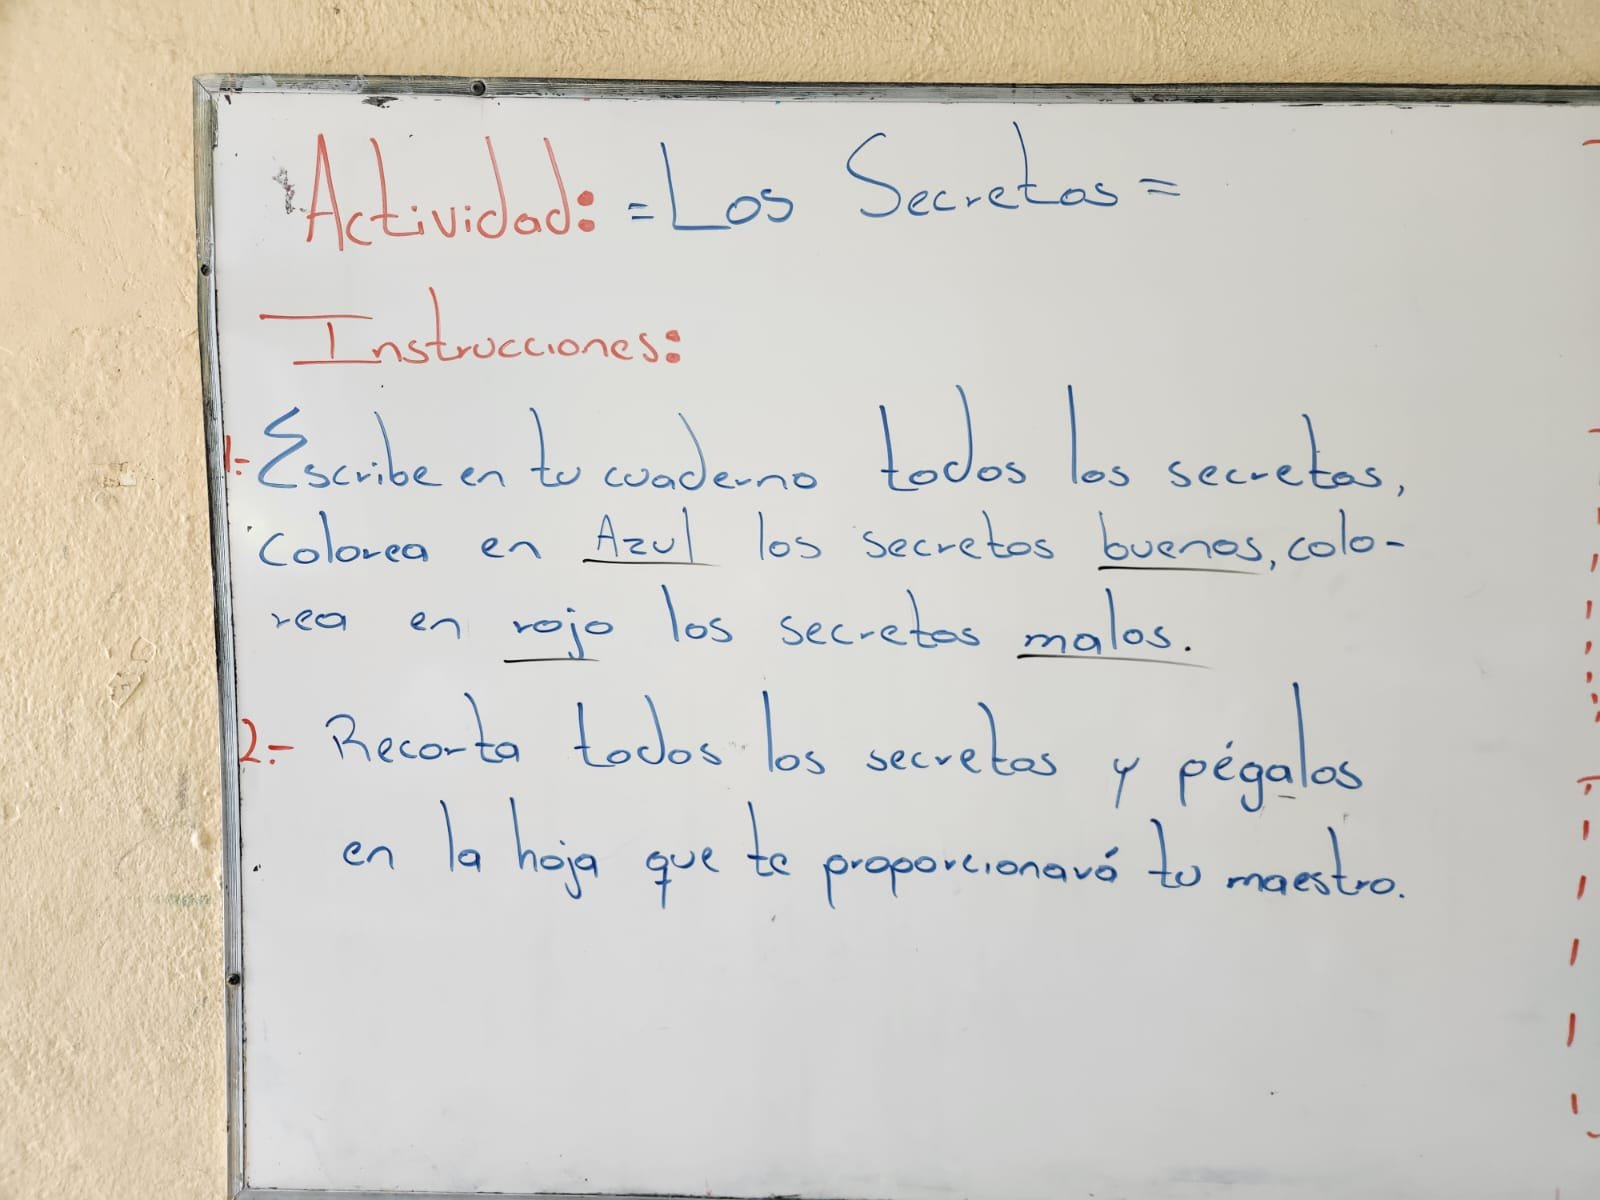 Actividad: = Los Secretos =
Instrucciones:
1.- Escribe en tu cuaderno todos los secretos,
colorea en Azul los secretos buenos, colo-
rea en rojo los secretos malos.
2.- Recorta todos los secretos y pégalos
en la hoja que te proporcionará tu maestro.